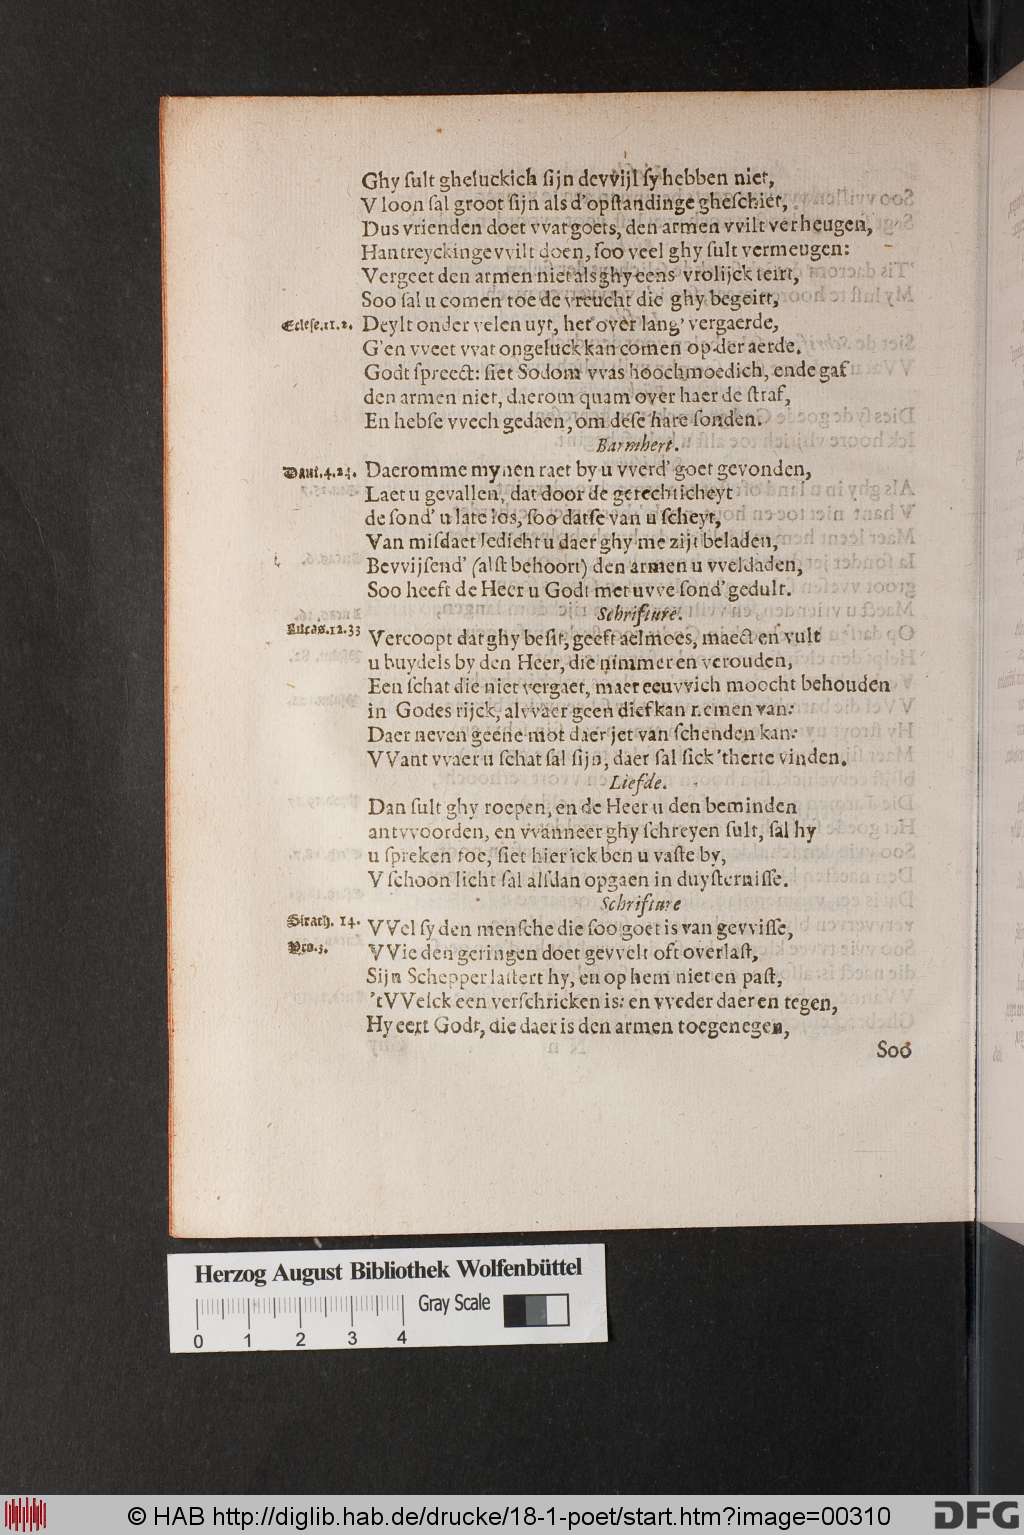 Ghy ſult gheluckich ſijn devvijl ſy hebben niet,
V loon ſal groot ſijn als d'opſtandinge gheſchiet,
Dus vrienden doet vvat goets, den armen vvilt verheugen,
Hantreyckinge vvilt doen, ſoo veel ghy ſult vermeugen:
Vergeet den armen niet als ghy eens vrolijck teirt,
Soo ſal u comen toe de vreucht die ghy begeirt,
Ecleſe.11.2. Deylt onder velen uyt, het over lang' vergaerde,
G'en vveet vvat ongeluck kan comen op der aerde.
Godt ſpreect: ſiet Sodom vvas hoochmoedich, ende gaf
den armen niet, daerom quam over haer de ſtraf,
En hebſe vvech gedaen, om deſe hare ſonden.
Barmhert.
Dani.4.24. Daeromme mynen raet by u vverd' goet gevonden,
Laet u gevallen, dat door de gerechticheyt
de ſond' u late los, ſoo datſe van u ſcheyt,
Van miſdaet ledicht u daer ghy me zijt beladen,
Bevvijſend' (alſt behoort) den armen u vveldaden,
Soo heeft de Heer u Godt met uvve ſond' gedult.
Schrifture.
Lucas.12.33 Vercoopt dat ghy beſit, geeft aelmoes, maect en vult
u buydels by den Heer, die nimmer en verouden,
Een ſchat die niet vergaet, maer eeuvvich moocht behouden
in Godes rijck, alvvaer geen dief kan nemen van:
Daer neven geene mot daer jet van ſchenden kan:
VVant vvaer u ſchat ſal ſijn, daer ſal ſick 'therte vinden.
Liefde.
Dan ſult ghy roepen, en de Heer u den beminden
antvvoorden, en vvanneer ghy ſchreyen ſult, ſal hy
u ſpreken toe, ſiet hier ick ben u vaſte by,
V ſchoon licht ſal alſdan opgaen in duyſterniſſe.
Schrifture
Sirach. 14. VVel ſy den menſche die ſoo goet is van gevviſſe,
Pro.3. VVie den geringen doet gevvelt oft overlaſt,
Sijn Schepper laſtert hy, en op hem niet en paſt,
'tVVelck een verſchricken is: en vveder daer en tegen,
Hy eert Godt, die daer is den armen toegenegen,
Soo
Herzog August Bibliothek Wolfenbüttel
Gray Scale
0 1 2 3 4
© HAB http://diglib.hab.de/drucke/18-1-poet/start.htm?image=00310
DFG